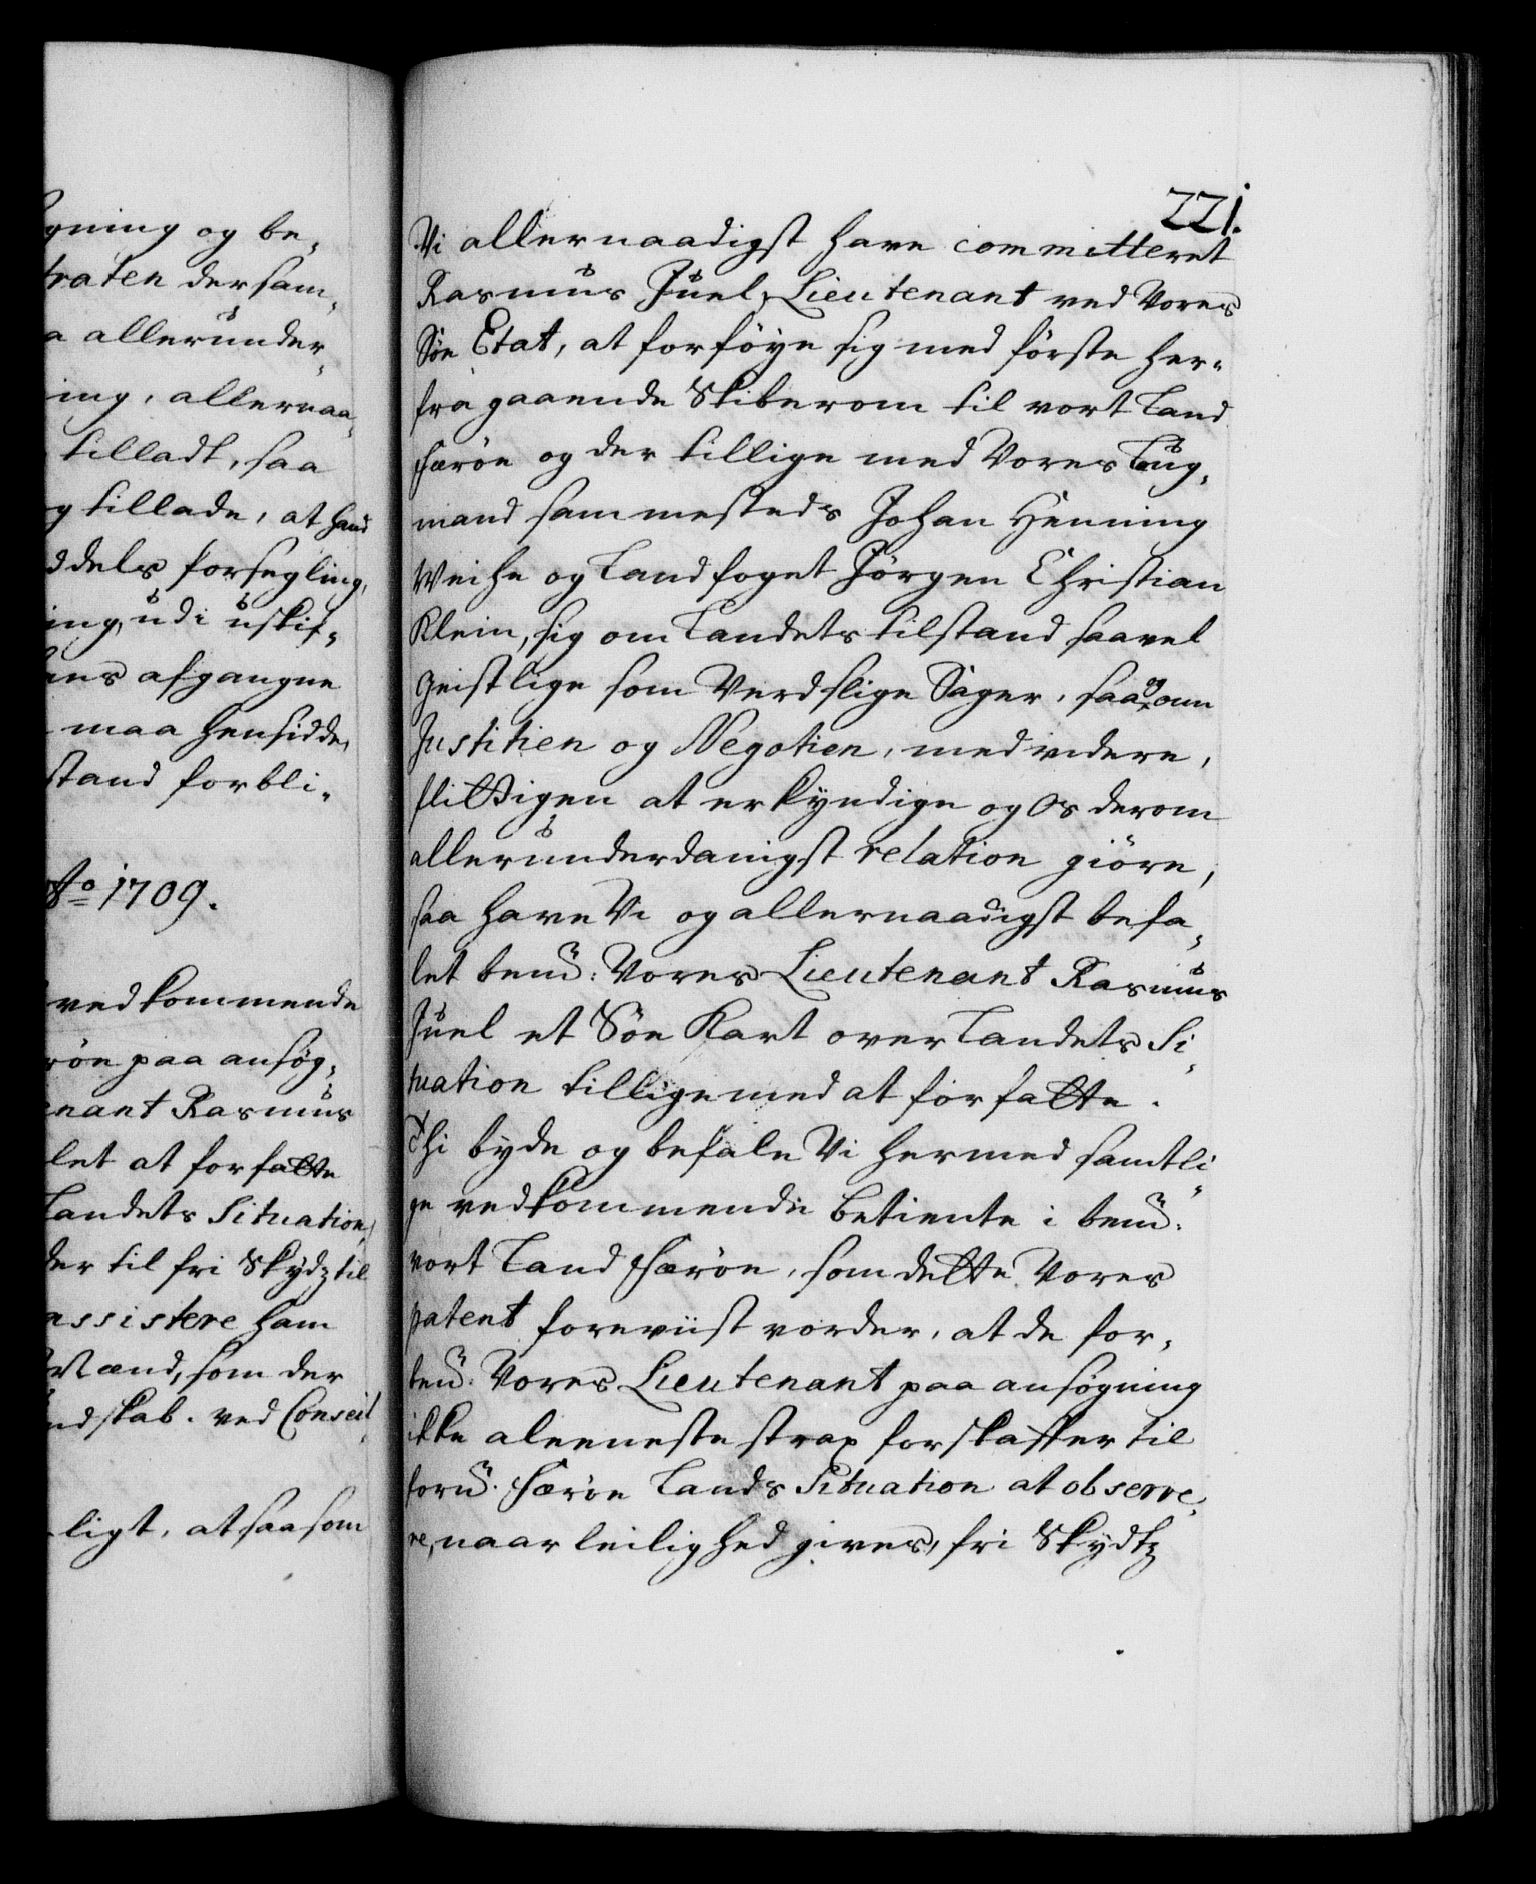 gning og be¸
traten dersam¸
a allerunder¸
ing, allernaa¸
tilladt, saa
g tillade, at hand
ddels forsegling,
ing, udi uskif¸
ens afgangne
maa hensidde,
stand forbli¸
Ao 1709.
vedkommende
röe paa ansøg¸
enant Rasmus
let at forfatte
Landets Situation,
der til fri Skydz til
assistere ham
Mænd, som der
ndskab. ved Conseil
ligt, at saasom
221.
Vi allernaadigst have committeret
Rasmus Juel, Lieutenant ved Vores
Söe Etat, at forföye sig med förste her¸
fra gaaende Skiberom til vort Land
Færöe og der tillige med Vores Laug¸
mand sammesteds Johan Henning
Weihe og Landfoget Jörgen Christian
Klein, sig om Landets tilstand saavel
Geistlige som Verdslige Sager, saa og om
Justitien og Negotien, med videre,
flittigen at erkyndige og Os derom
allerunderdanigst relation giöre,
saa have Vi og allernaadigst befa¸
let bemd: Vores Lieutenant Rasmus
Juel et Söe Kart over Landets Si¸
tuation tilligemed at forfatte.
Thi byde og befale Vi hermed samtli¸
ge vedkommende betiente i bemd:
vort Land Færöe, som dette Vores
patent foreviist vorder, at de for¸
bemd: Vores Lieutenant paa ansøgning
ikke aleeneste strax forskaffer til
formd: Færöe Lands Situation at observe¸
re, naar leilighed gives, fri Skydtz